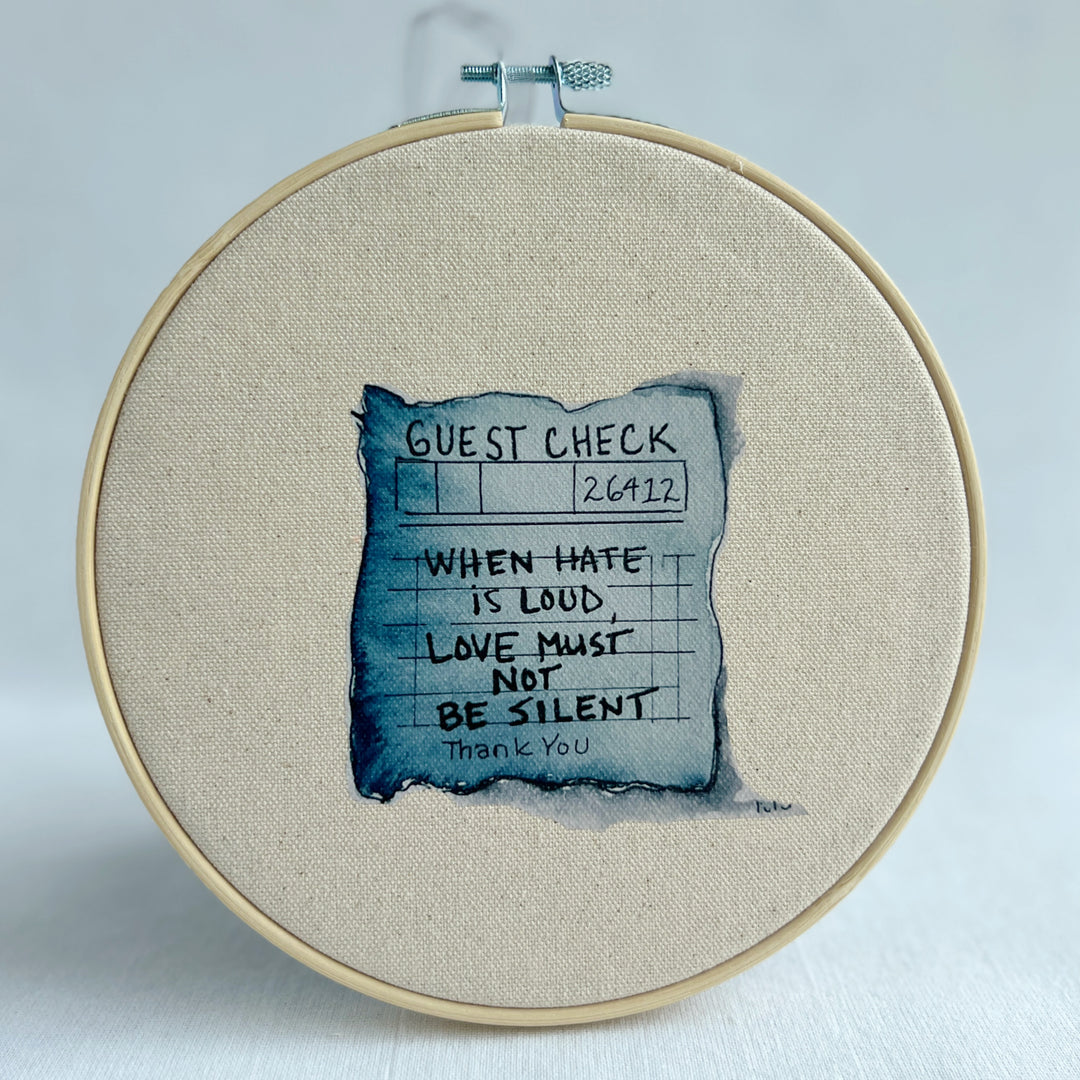 GUEST CHECK
26412
WHEN HATE
is LOUD,
LOVE MUST
NOT
BE SILENT
Thank You